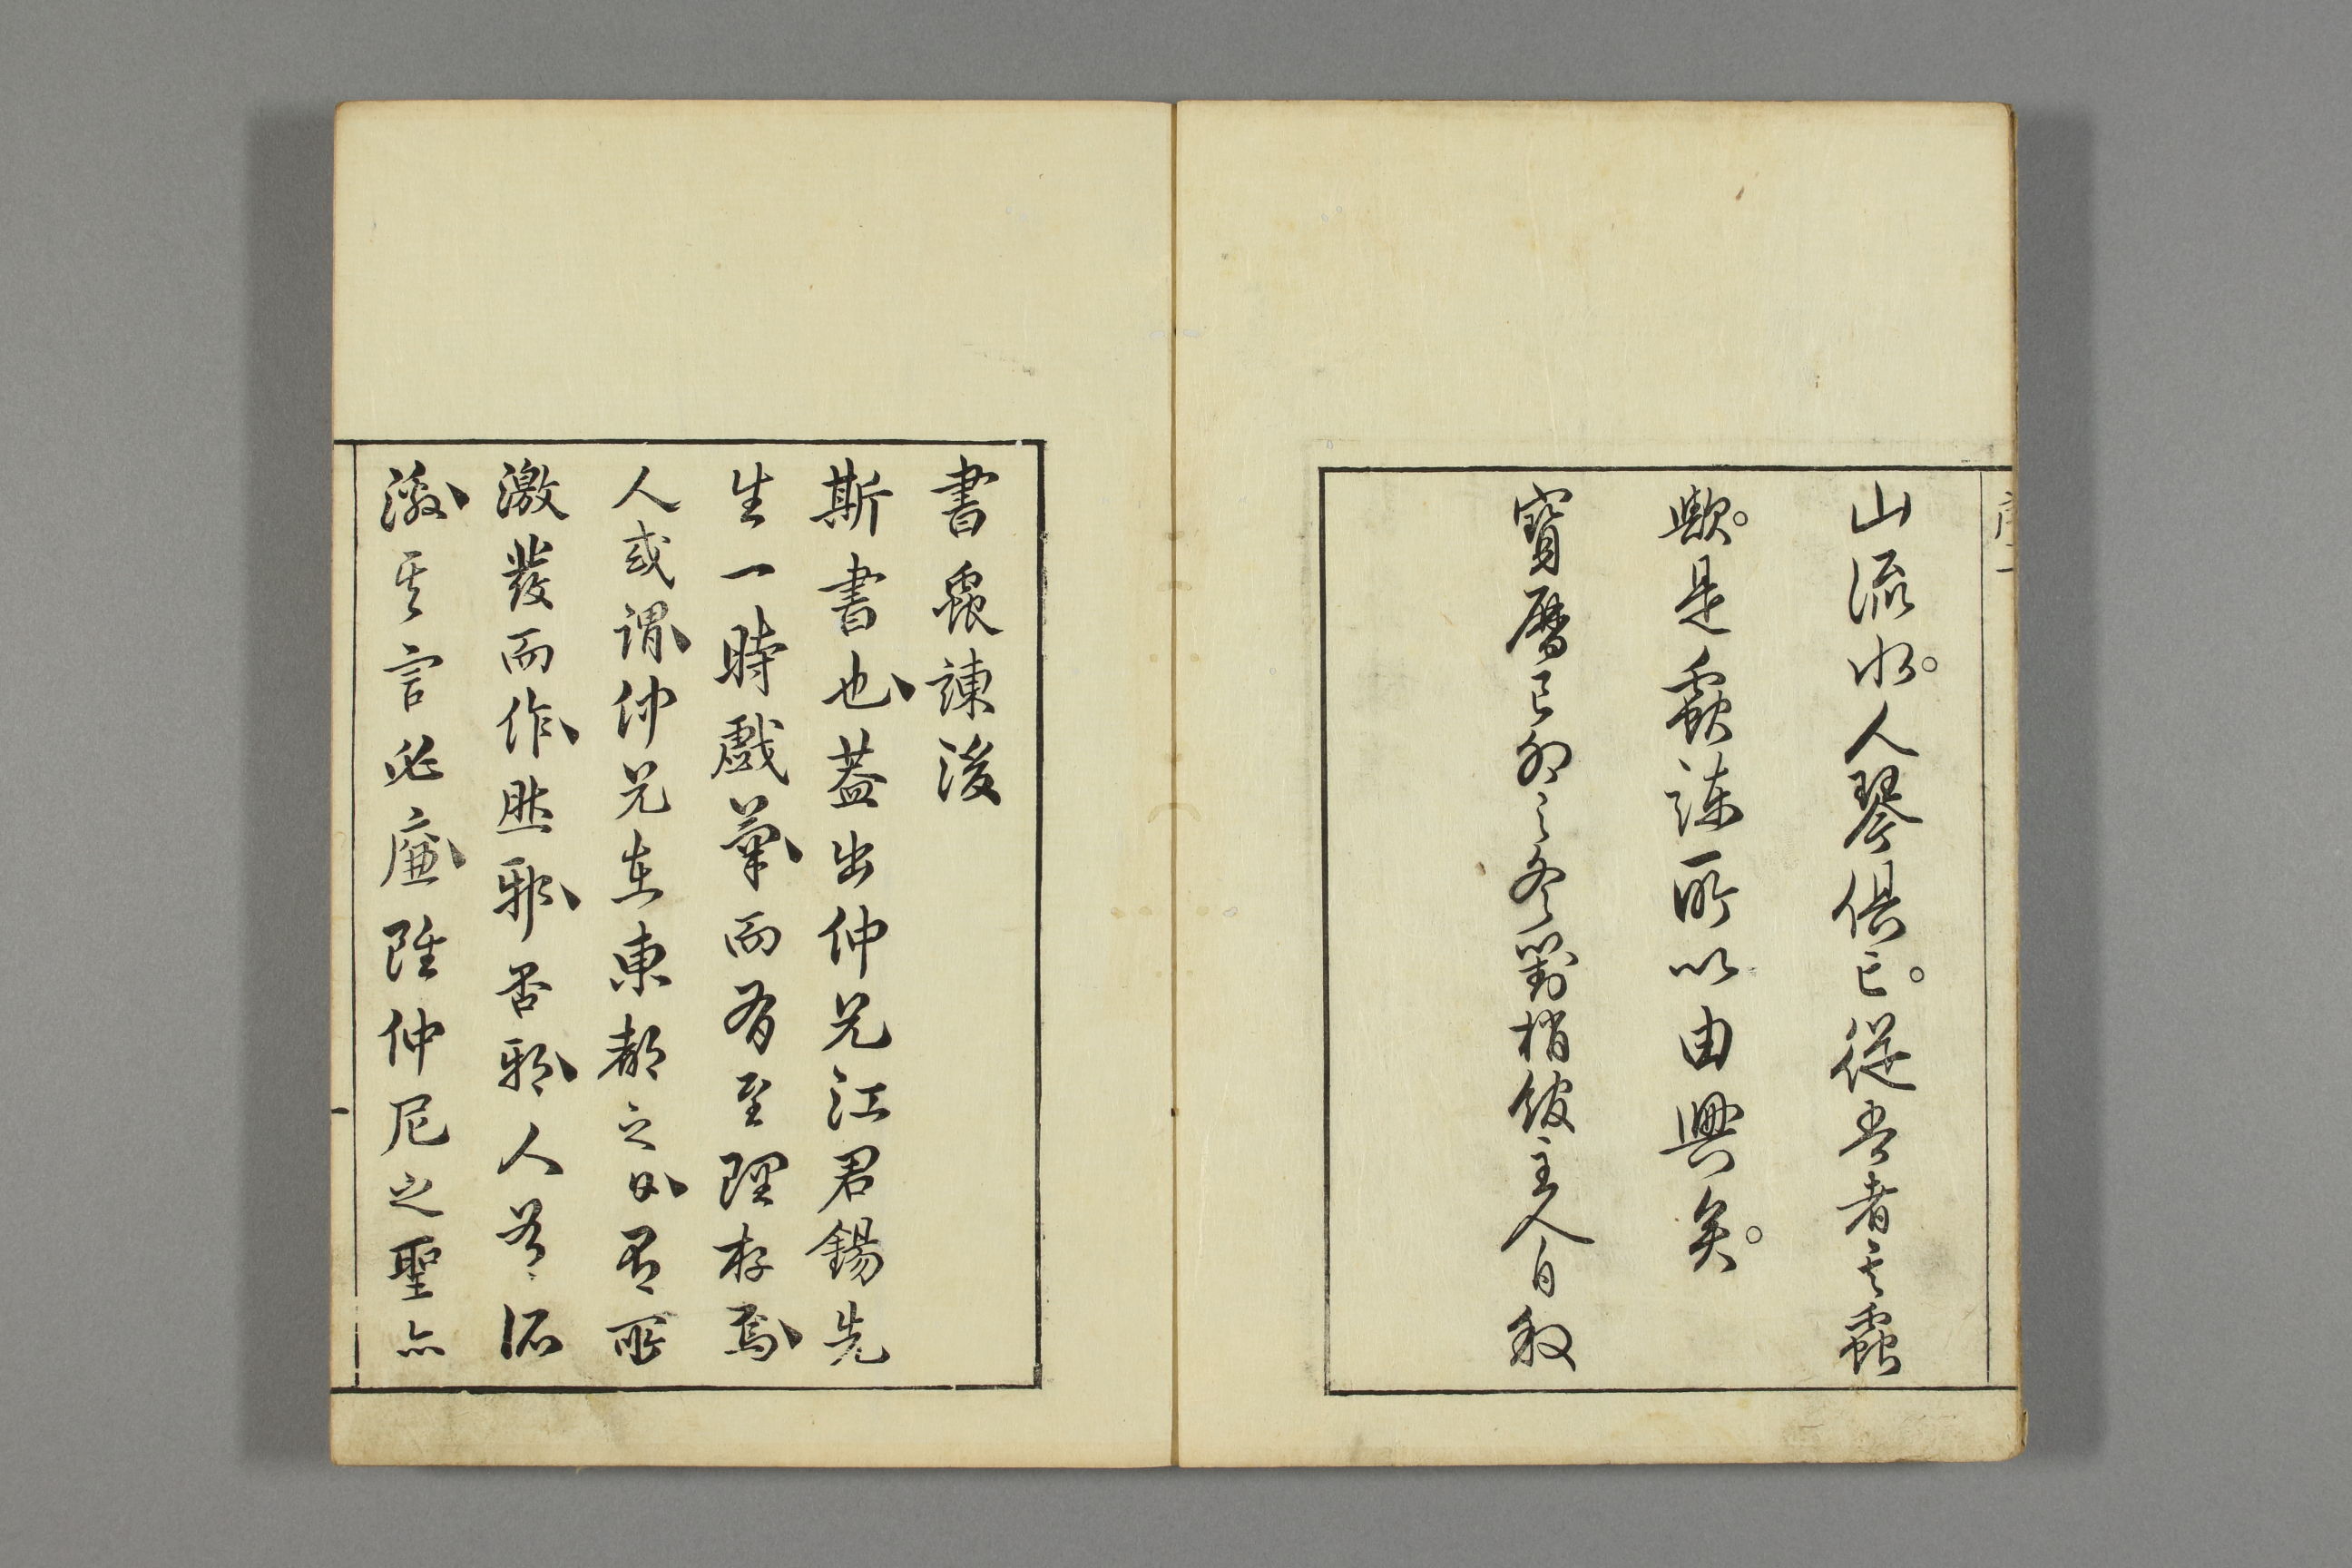 山流水。人琴俱亡。從吾者其蟲
歟。是蟲諫所以由興矣。
寶曆己卯之冬對梢館主人自叙
書蟲諫後
斯書也蓋出仲兄江君錫先
生一時戲筆而有至理存焉
人或謂仲兄在東都之日有所
激發而作然邪否邪人有所
激其言必廉雖仲尼之聖亦